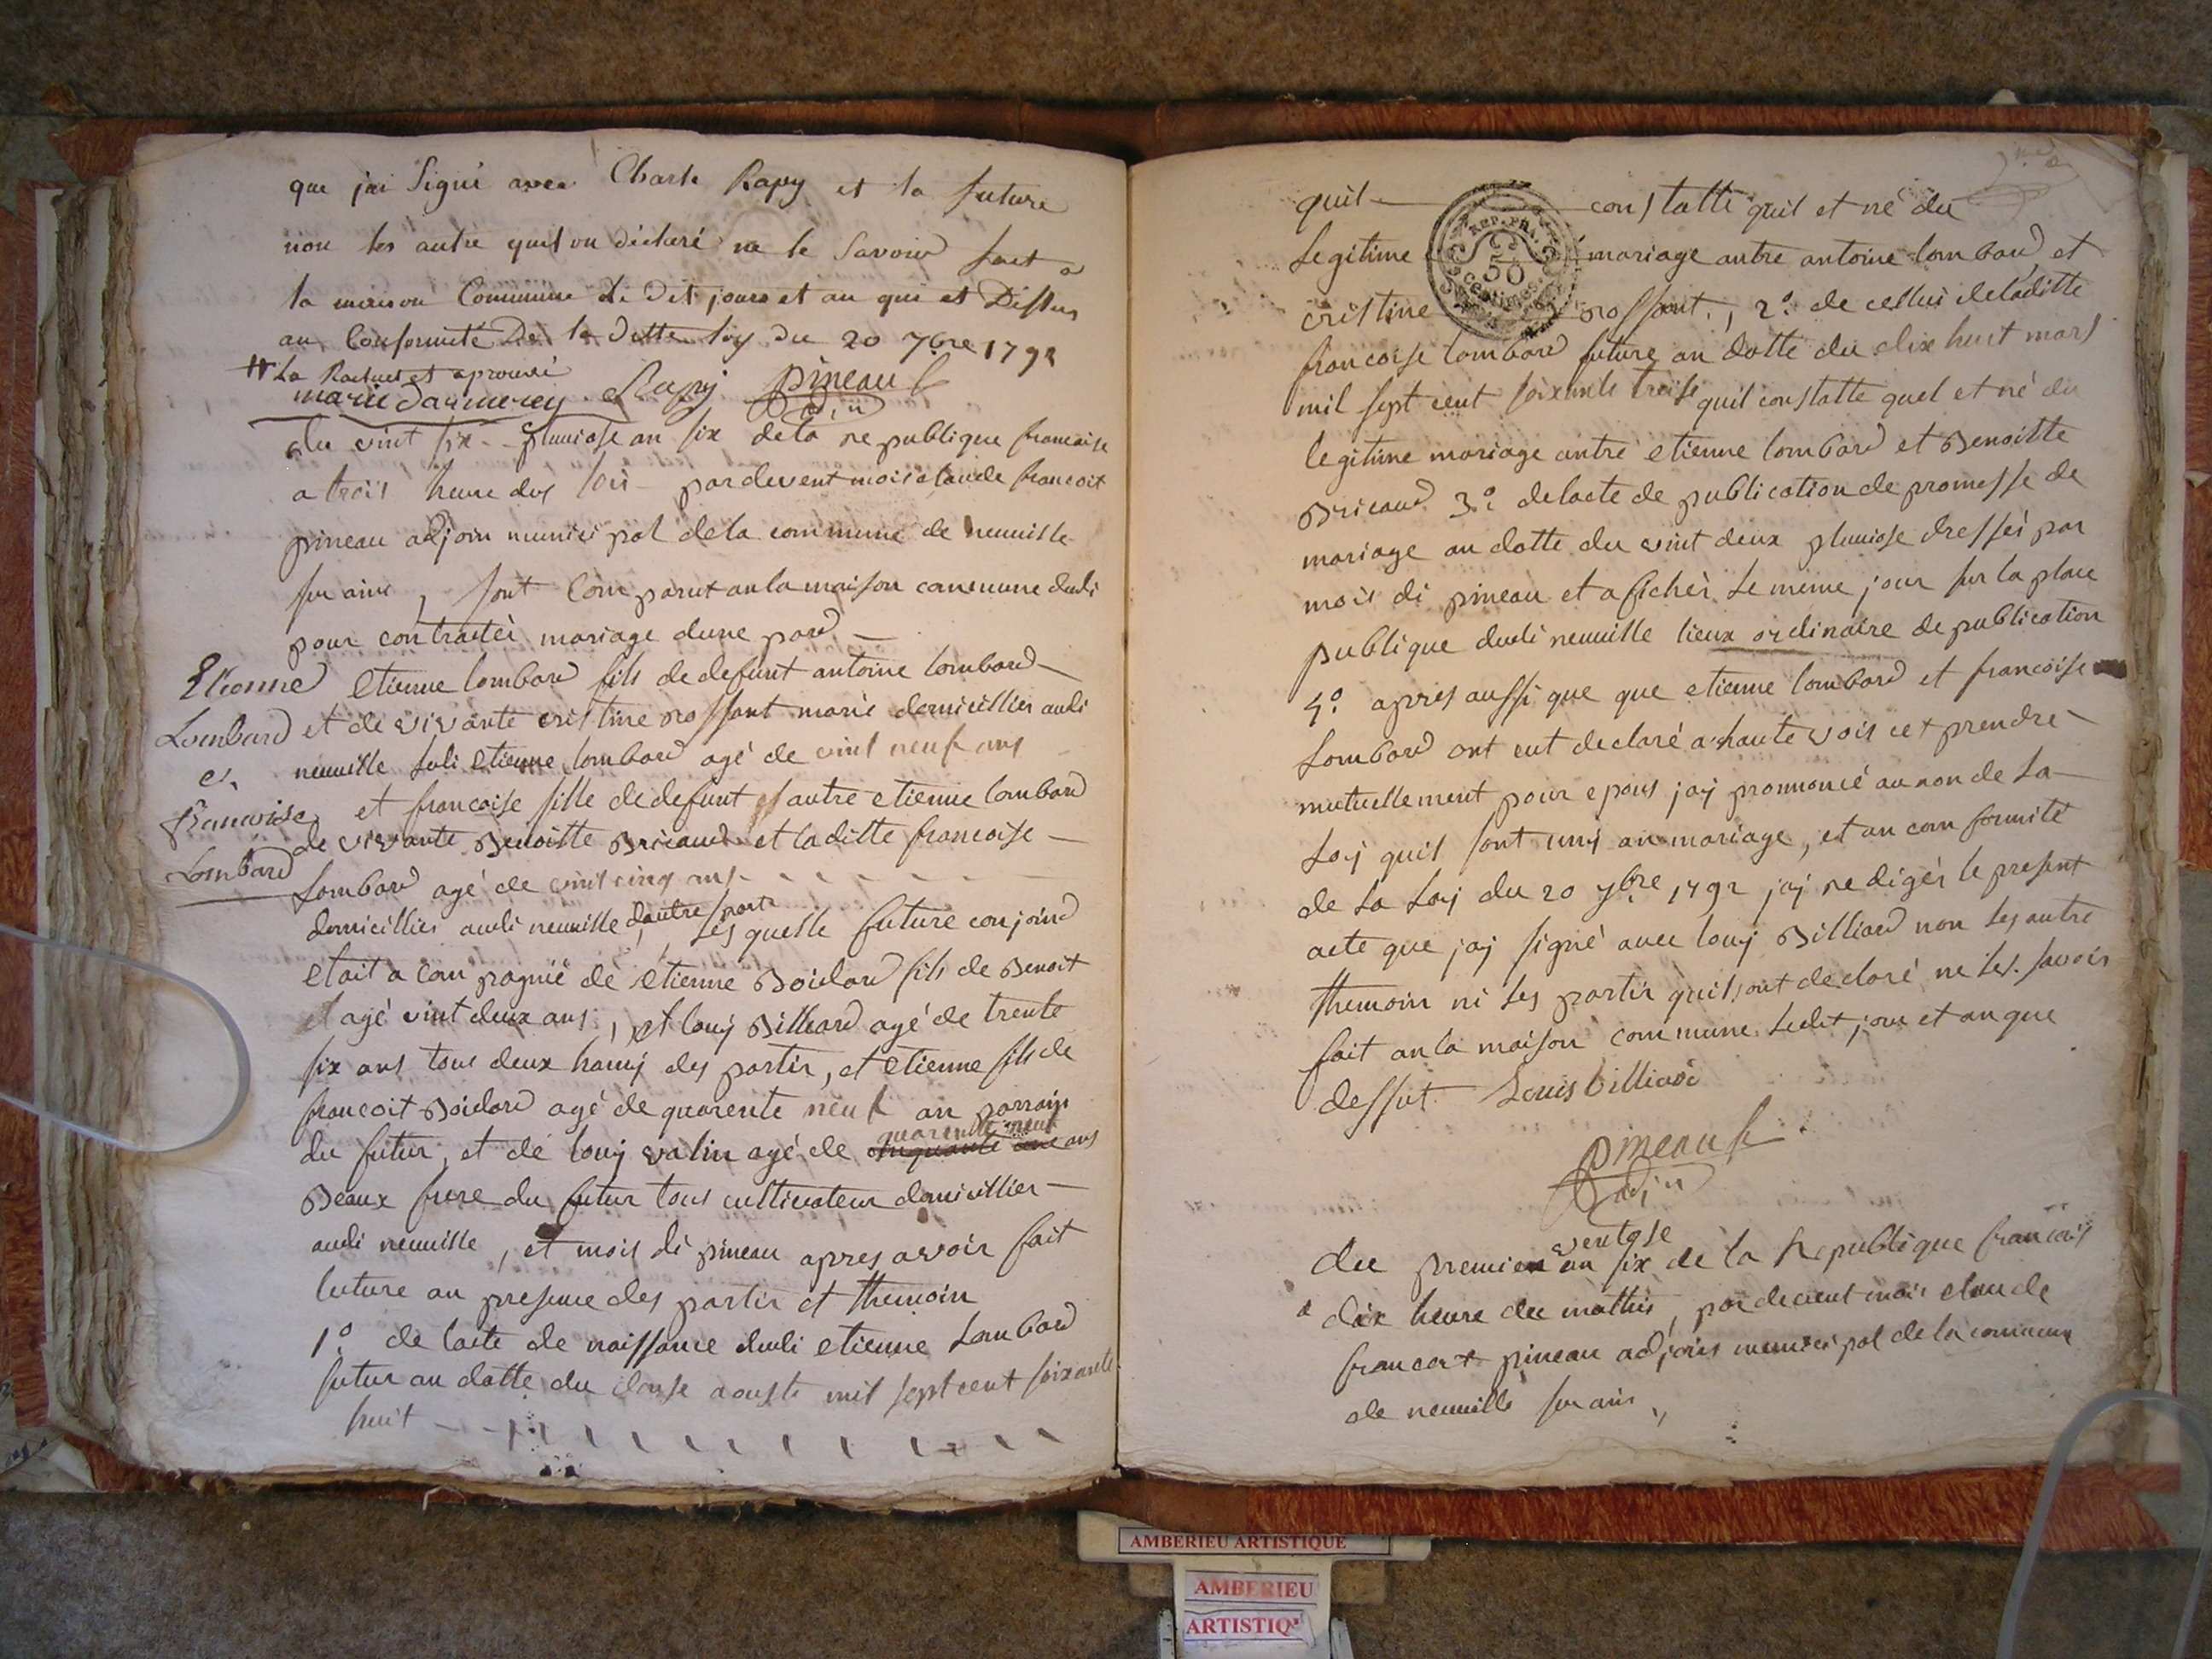 que jai Signé avec Charle Rapy et la future
non les autre quil on déclaré ne le Savoir fait a
la maison Commune Le Dit jours et an que et Dessus
an Conformité De la ditte loy du 20 7bre 1792
La Rature et aprouvé
marie Rapy pineau f
adjn
du vint six pluviose an six dela republique francaise
a trois heure dus soir pardevent mois claude francoit
pineau adjoin municipal dela commune de neuville
sur ains, sont Comparut an la maison commune dudi
pour contracter mariage dune pard
Etienne
Lombard
et
francoise
Lombard
etienne lombard fils de defunt antoine lombard
et de vivante cristine rossant marié domicillier audi
neuville ledi etienne lombard agé de vint neuf ans
et francoise fille de defunt autre etienne lombard
de vivante Benoitte Bricaud et laditte francoise
Lombard agé de vint cinq ans
domicillier audi neuville, dautre part Les quelle future conjoind
etait a compagnié de etienne Boidard fils de Benoit
et agé vint deux ans, et louij Billiard agé de trente
six ans tous deux hamij des partir, et etienne fils de
francoit Boidard agé de quarente neuf an parrain
du futur, et de louij valin agé de quarente neuf ans
Beaux frere du futur tous cultivateur domicillier
audi neuville, et mois di pineau apres avoir fait
lecture an presence des partir et themoin
1.º de lacte de naissance dudi etienne Lombard
futur an datte du douse aouste mil sept cent soixante
huit
quil constatte quil et né du
REP. FRA.
50
centimes
Legitime mariage antre antoine lombard et
cristine rossant, 2.º de cellui deladitte
francoise lombard future an datte du dix huit mars
mil sept cent soixente treise quil constatte quel et né du
legitime mariage antre etienne lombard et Benoitte
Bricaud 3.º delacte de publication de promesse de
mariage an datte du vint deux pluviose dressés par
mois di pineau et afichér Le meme jour sur la place
publique dudi neuville lieux ordinaire de publication
4.º apres aussi que que etienne lombard et francoise
Lombard ont eut declaré a haute vois cet prendre
mutuellement pour epous jaij prononcé au non de La
Loij quil sont unij an mariage, et an comformité
de La Loij du 20 7bre 1792 jaij redigér le present
acte que jaij signé avec louij Billiard non les autre
themoin ni Les partir quil ont declaré ne Les savoir
fait an la maison commune Ledit jour et an que
dessut Louis billiard
pineau f
adjn
du premier ventose an six de la Republique francais
a dix heure du mathis, par devent mois claude
francoit pineau adjoins municipal de la commune
de neuville sur ains,
AMBERIEU ARTISTIQUE
AMBERIEU
ARTISTIQ